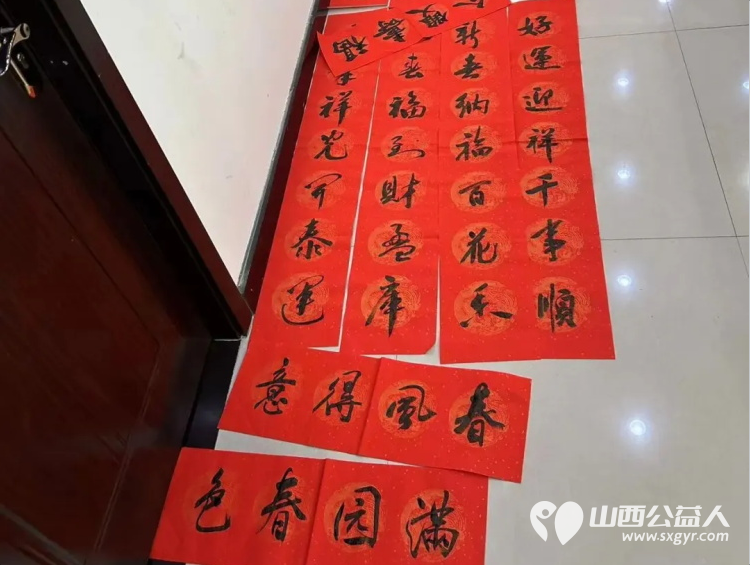 好運迎祥千事順
新春纳福百花香
福到财盈库
祥光开泰運
春風得意
满园春色
山西公益人
www.sxgyr.com